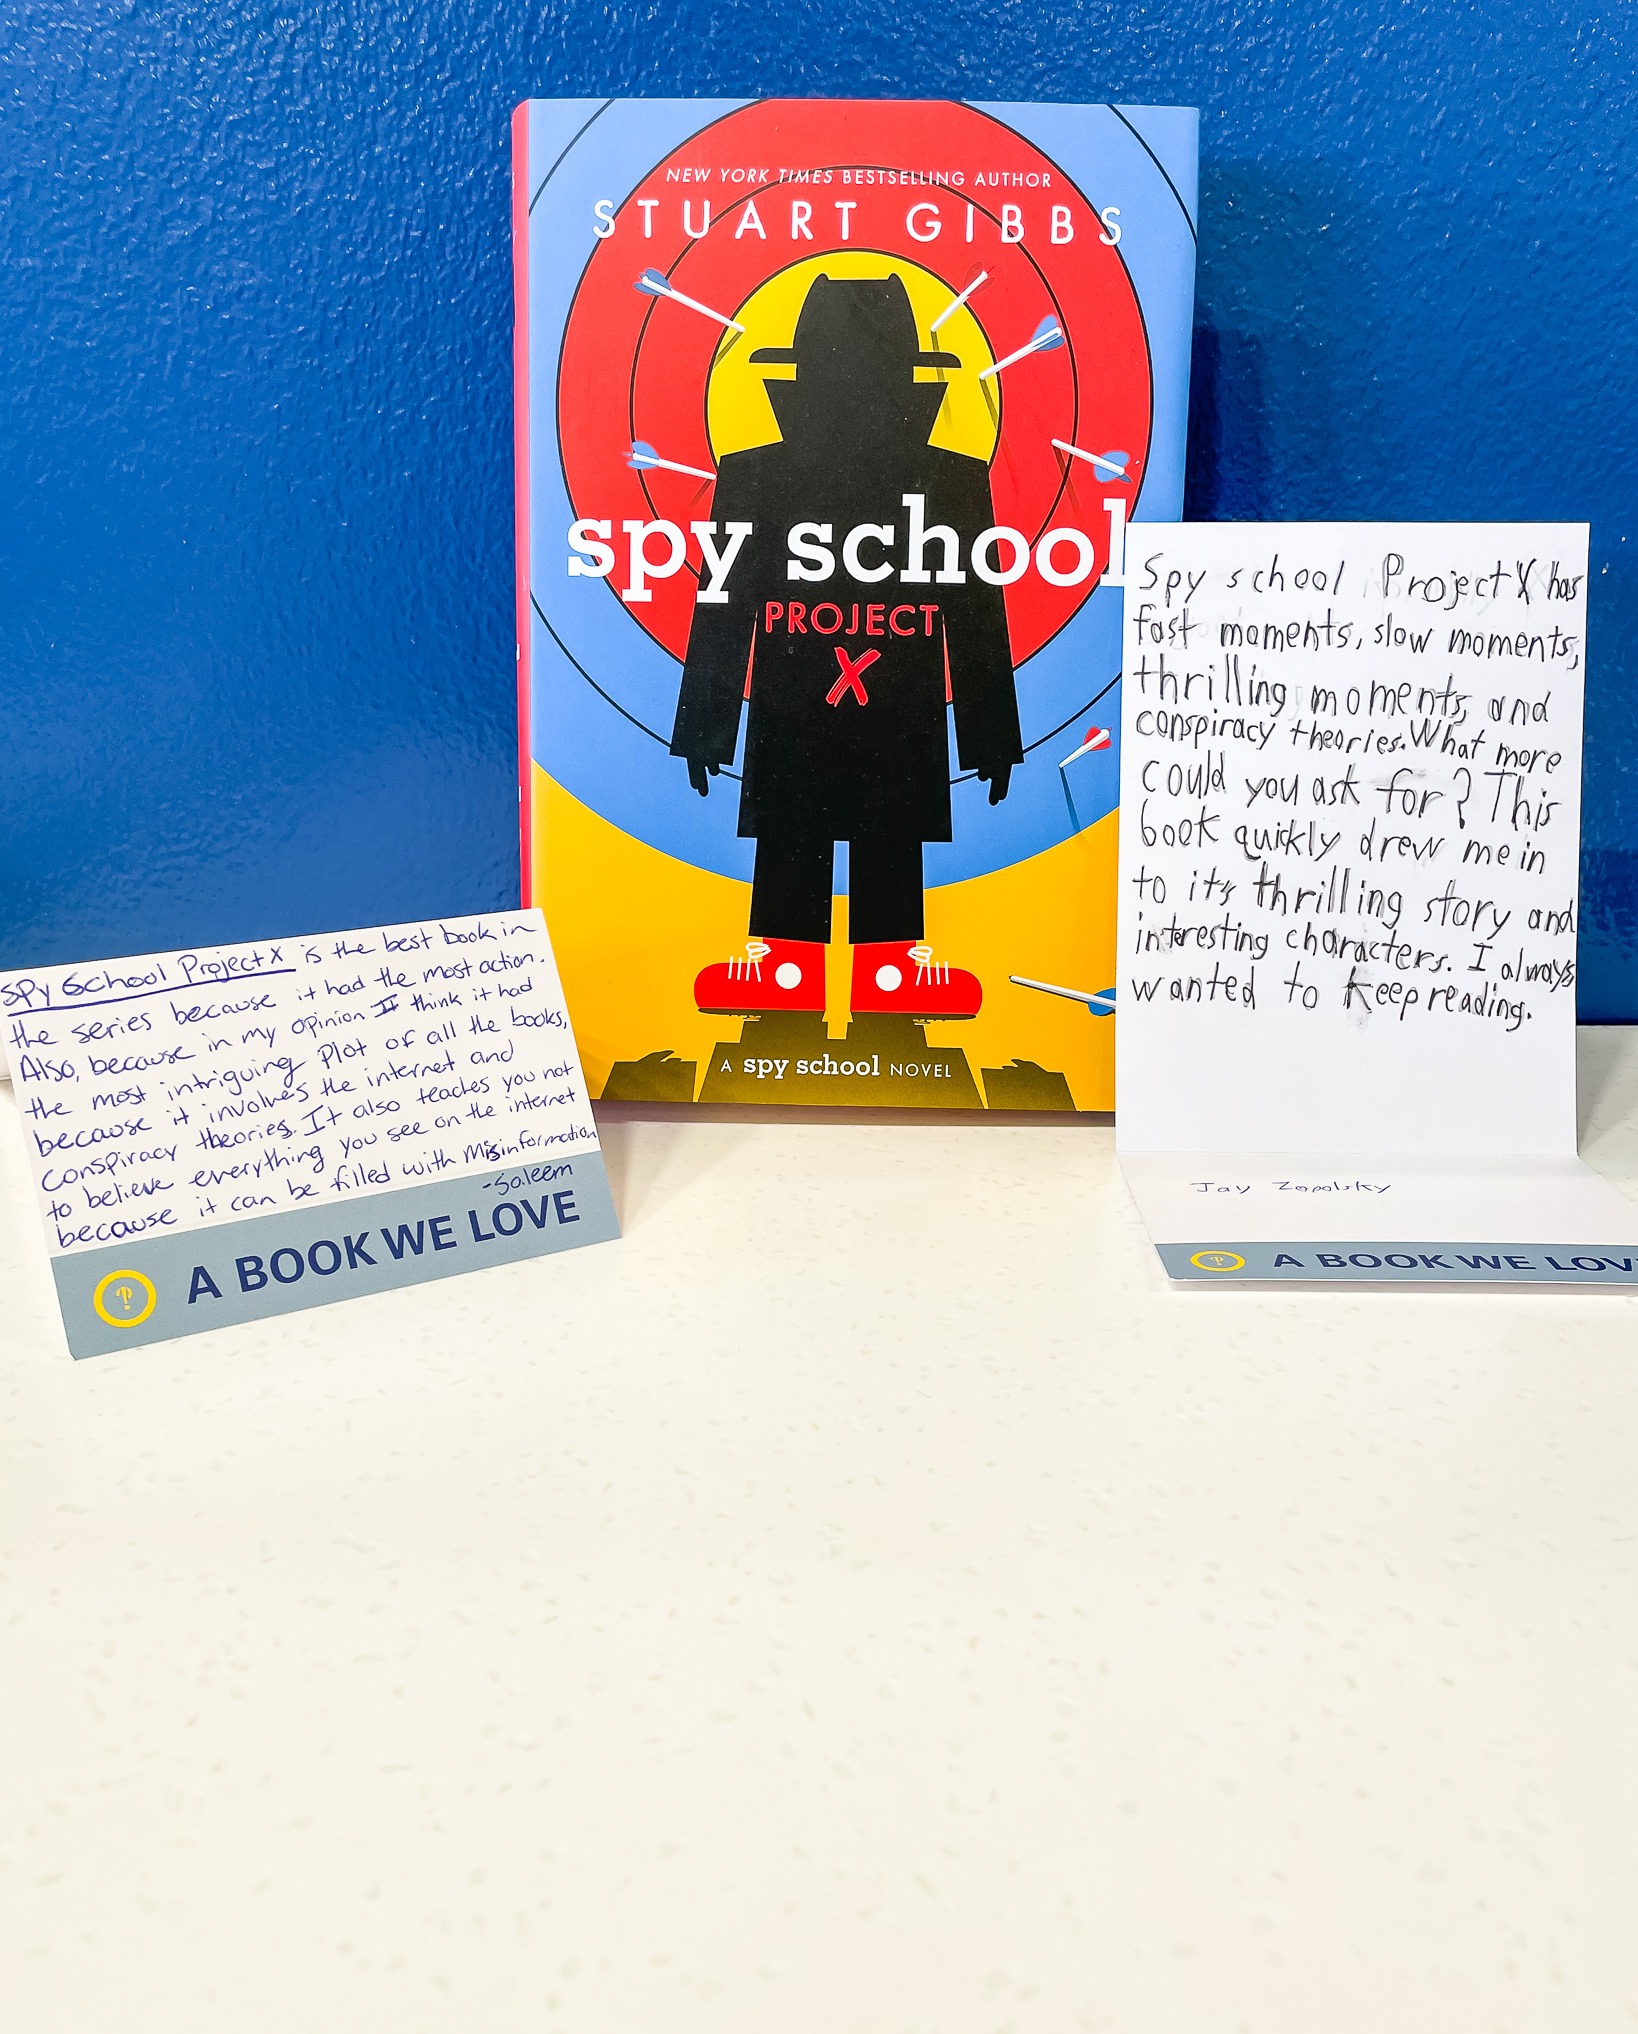 NEW YORK TIMES BESTSELLING AUTHOR
STUART GIBBS
spy school
PROJECT
X
A spy school NOVEL
Spy School Project X is the best book in
the series because it had the most action.
Also, because in my opinion I think it had
the most intriguing plot of all the books,
because it involves the internet and
conspiracy theories. It also teaches you not
to believe everything you see on the internet
because it can be filled with Misinformation
-Saleem
A BOOK WE LOVE
Spy school Project X has
fast moments, slow moments,
thrilling moments, and
conspiracy theories. What more
could you ask for? This
book quickly drew me in
to it's thrilling story and
interesting characters. I always
wanted to keep reading.
Jay Zopolsky
A BOOK WE LOV